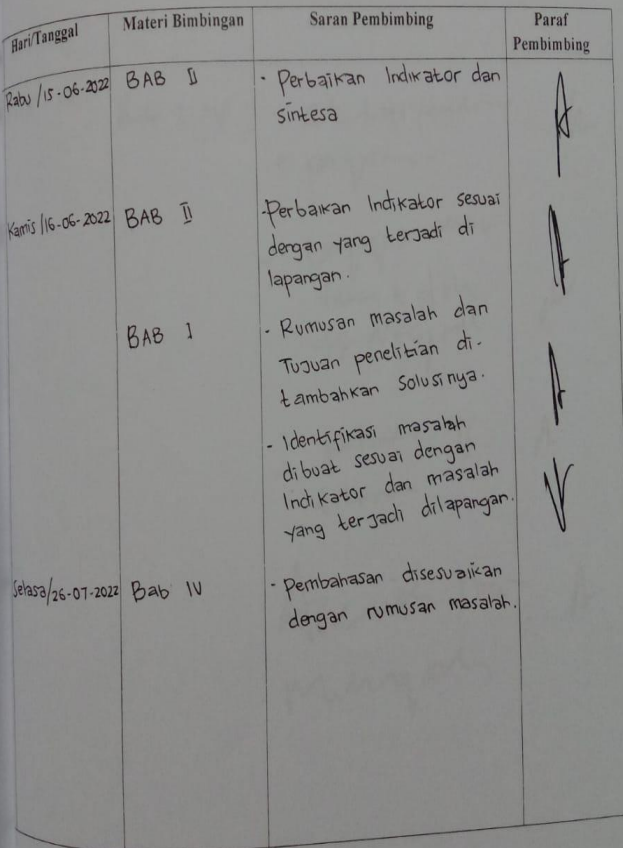 Hari/Tanggal Materi Bimbingan Saran Pembimbing Paraf Pembimbing
Rabu /15-06-2022 BAB II - Perbaikan Indikator dan
sintesa
Kamis /16-06-2022 BAB II -Perbaikan Indikator sesuai
dengan yang terjadi di
lapangan.
BAB I - Rumusan masalah dan
Tujuan penelitian di-
tambahkan Solusinya.
- Identifikasi masalah
dibuat sesuai dengan
Indikator dan masalah
yang terjadi dilapangan.
Selasa/26-07-2022 Bab IV - Pembahasan disesuaikan
dengan rumusan masalah.